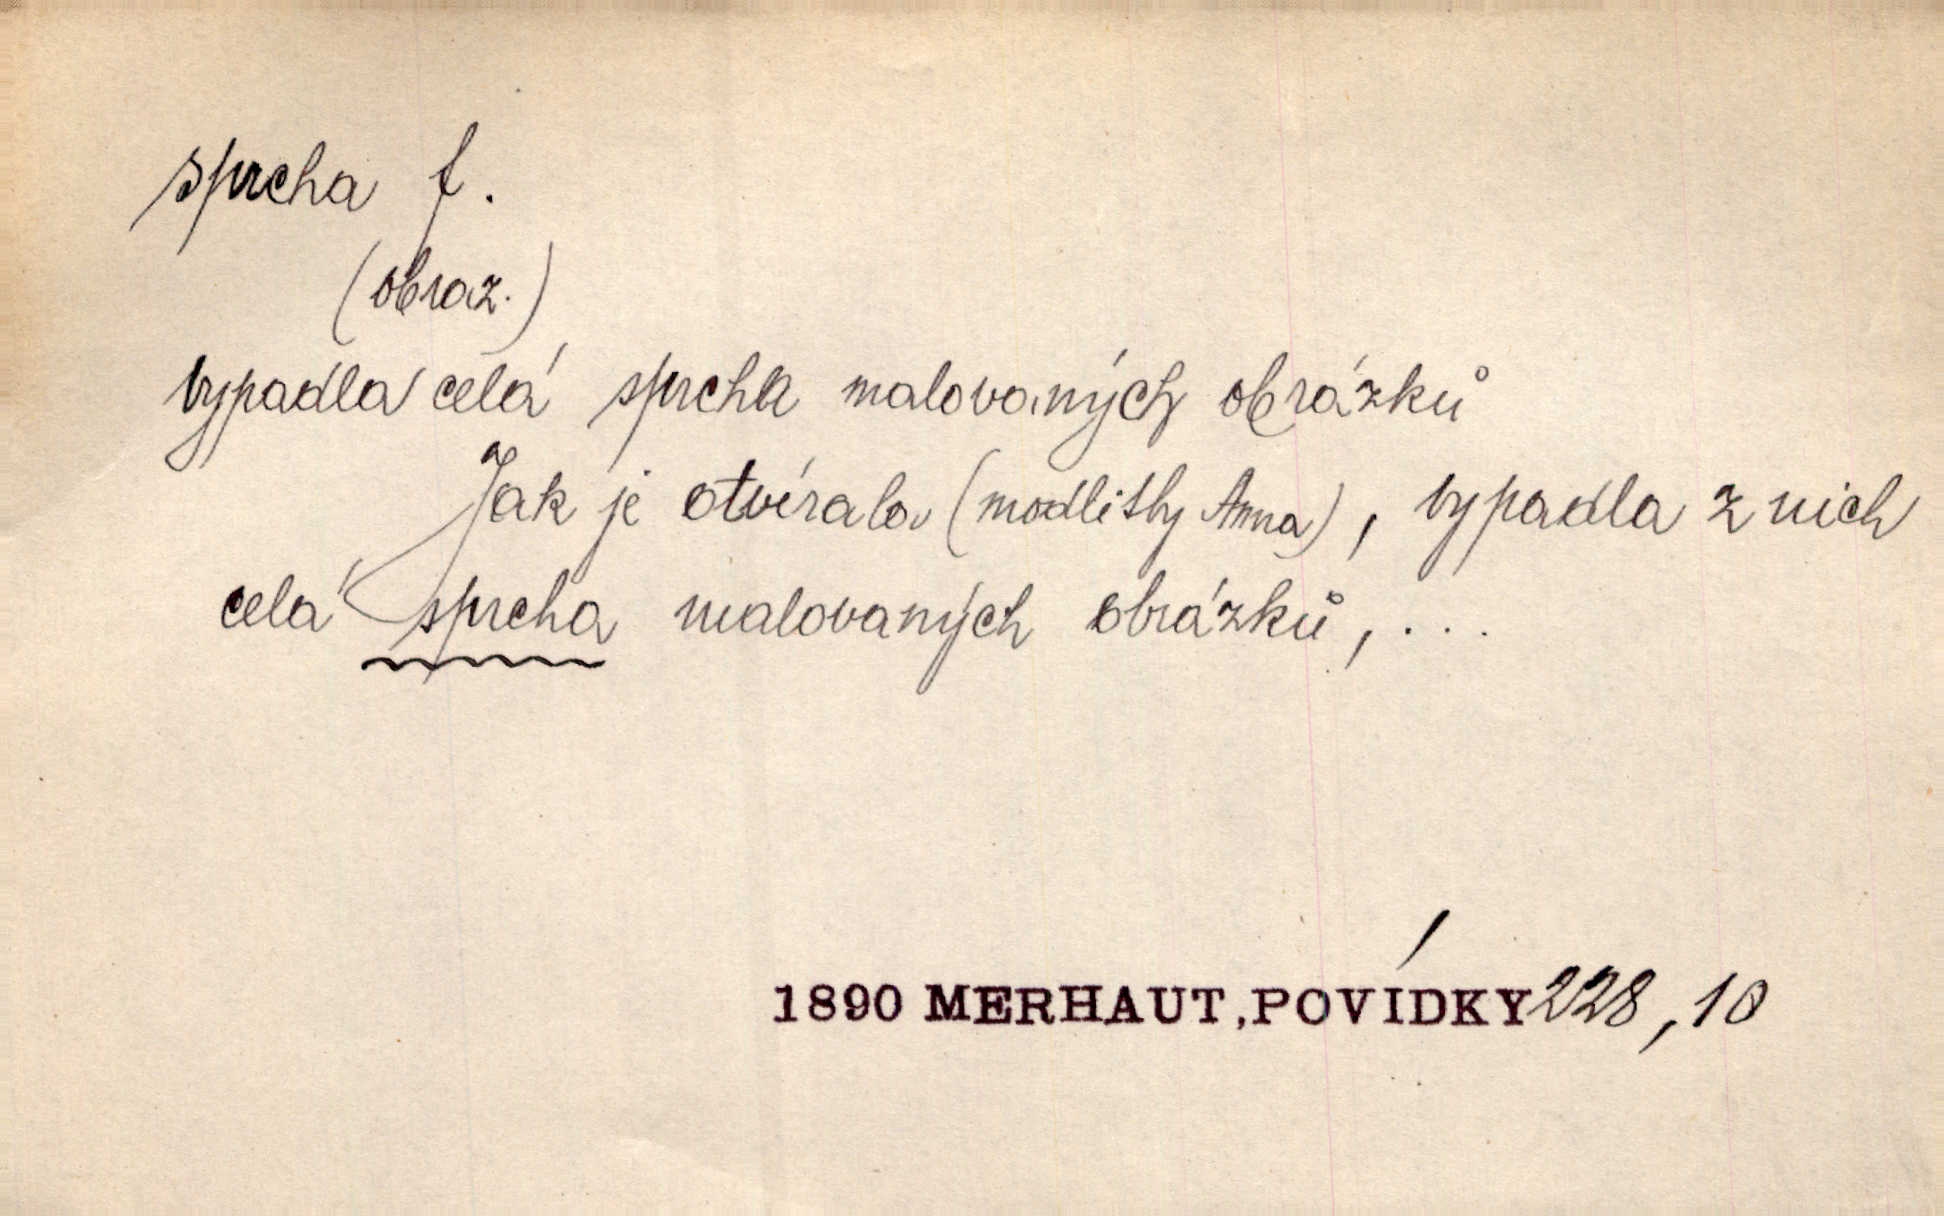 sprcha f.
(obraz.)
vypadla celá sprcha malovaných obrázků
Jak je otvírala (modlitby Anna), vypadla z nich
celá sprcha malovaných obrázků, ...
1890 MERHAUT, POVÍDKY 228, 10